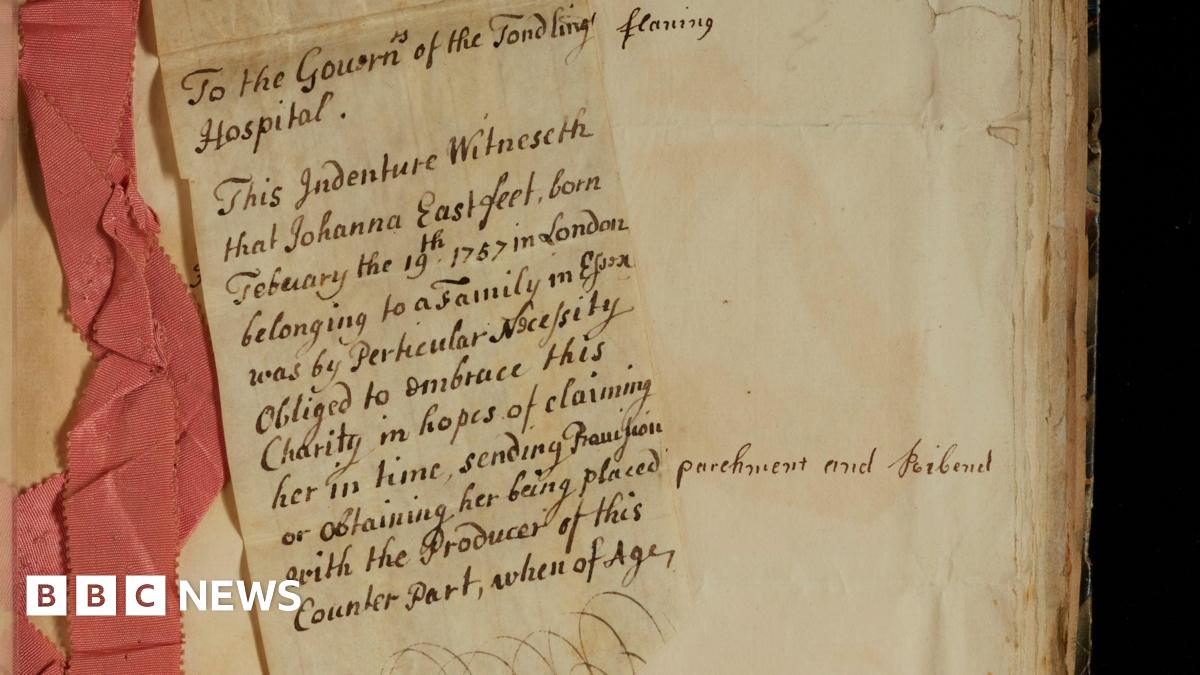 To the Gouernrs of the Fondling
Hospital.
This Indenture Witneseth
that Johanna Eastfeet, born
Febuary the 19th. 1757 in London
belonging to a Family in Essex
was by Perticular Necessity
Obliged to embrace this
Charity in hopes of claiming
her in time, sending Provision
or obtaining her being placed
with the Producer of this
Counter Part, when of Age,
parchment and Ribend
BBC NEWS